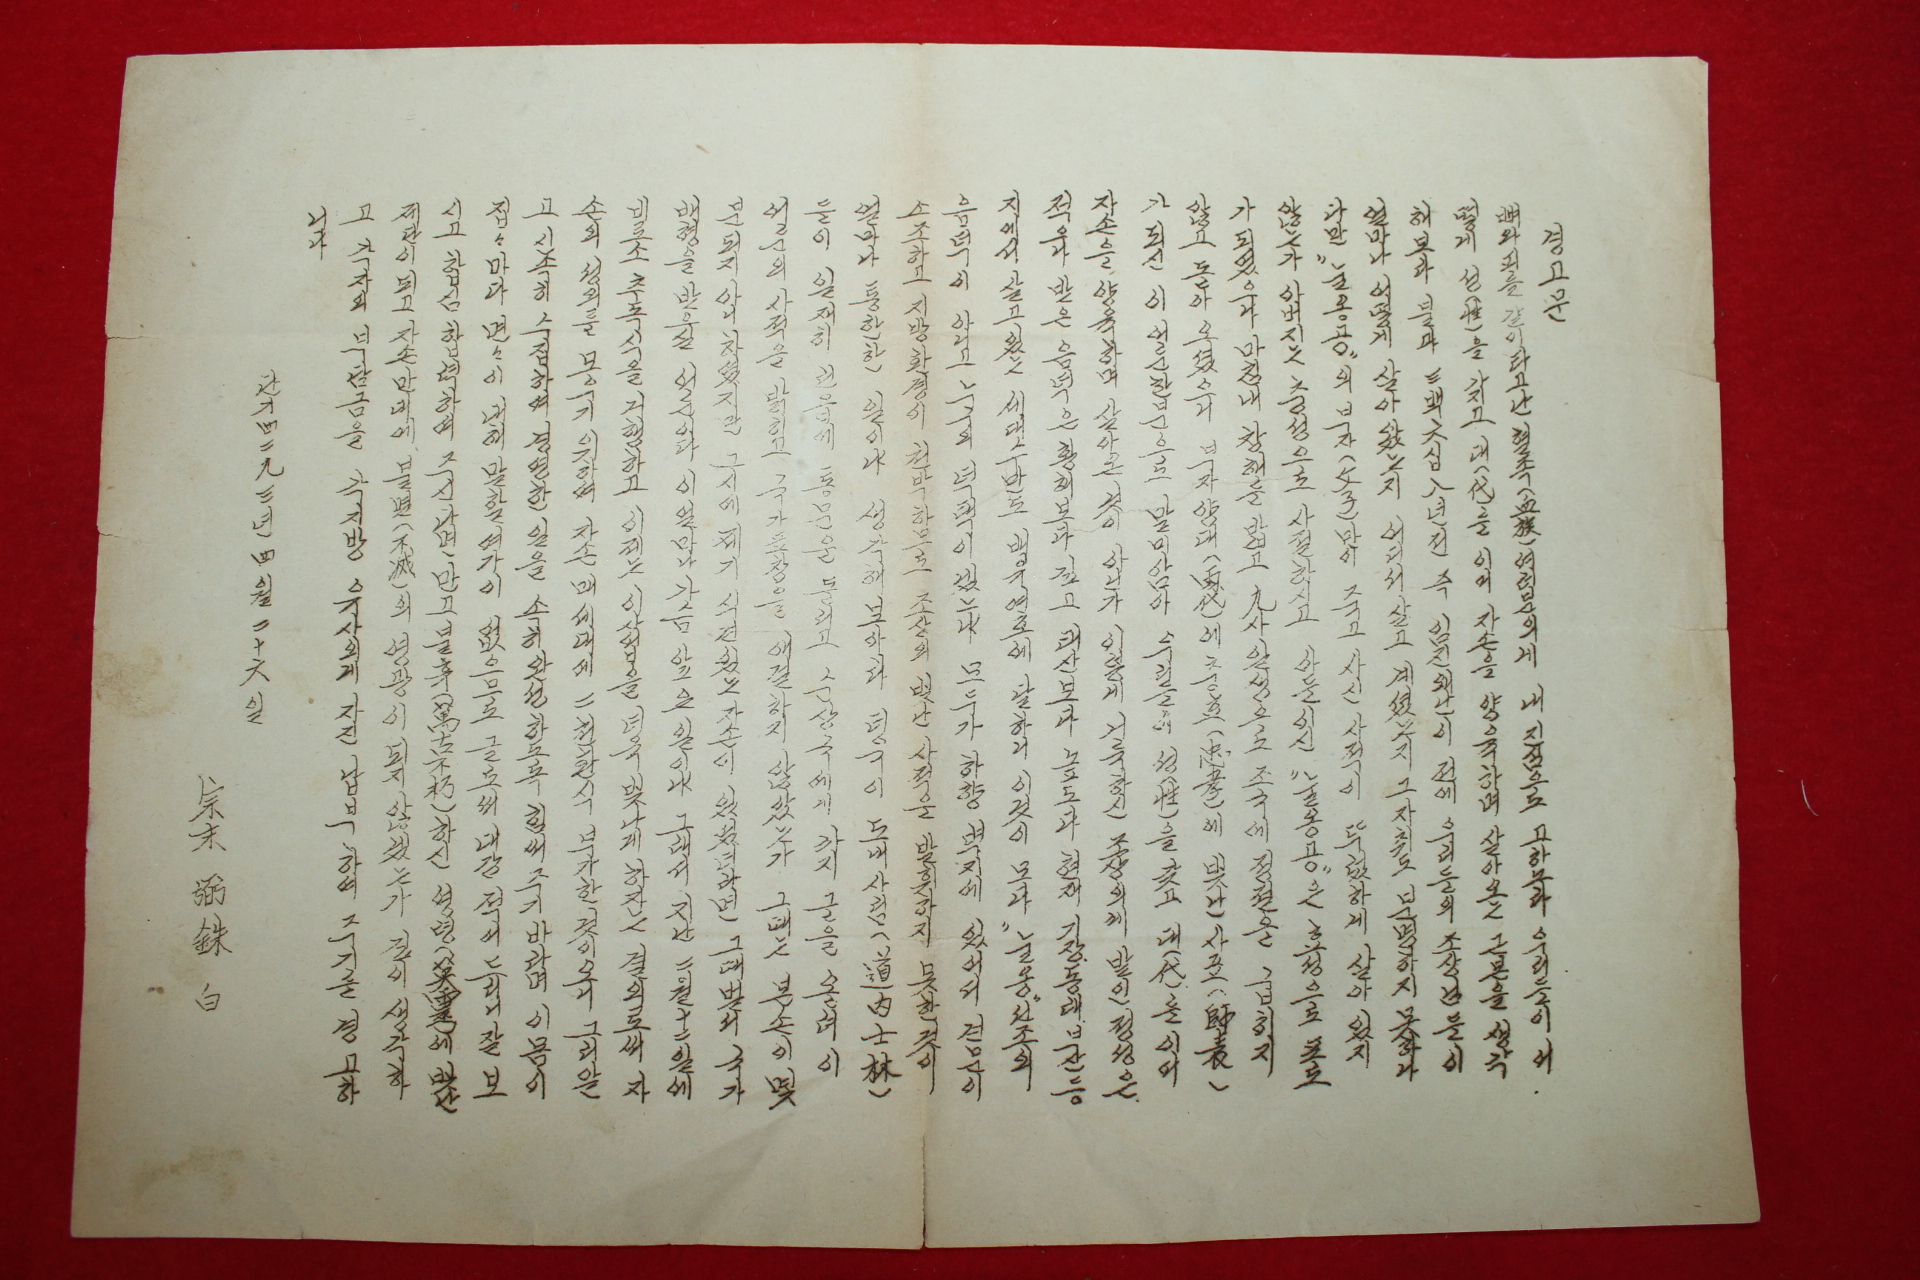 경고문
뼈와 피를 같이 타고난 혈족(血族) 여러분의게 내 진심으로 고하노라 우리들이 어
떻게 성(姓)을 가지고 대(代)를 이어 자손을 양육하며 살아온 근본을 생각
해 보라 불과 三백六십八년전 즉 임진왜란이 전에 우리들의 조상님들이
얼마나 어떻게 살아왔는지 어디서 살고 계셨는지 그 자취도 분명하지 못하라
다만 "눌옹공"의 부자(父子)만이 죽고 사신 사적이 뚜렸하게 살아 있지
않는가 아버지는 충성으로 사절하시고 아들이신 "눌옹공"은 효성으로 포로
가 되였으나 마침내 창해를 밟고 九사일생으로 조국에 정절은 굽히지
않고 돌아오셨으니 부자양대(両代)에 충효(忠孝)에 빛난 사표(師表)
가 되신 이 어른 한분으로 말미암아 우리들의 성(姓)을 찾고 대(代)를 이어
자손을 양육하며 살아온 것이 아닌가 이렇게 거룩하신 조상의게 받인 정성은
적으나 받은 음덕은 황해보다 깊고 태산보다 높도다 현재 기장 동래 부산 등
지에서 살고 있는 세대수만도 백수여호에 달하니 이것이 모다 "눌옹"선조의
음덕이 아니고 누구의 덕택이 있는냐 모두가 하향 벽지에 있어서 견문이
소조하고 지방 환경이 천박함으로 조상의 빛난 사적을 발휘하지 못한 것이
얼마나 통한한 일이냐 생각해 보아라 덩구이 도내사림(道内士林)
들이 일저히 번음에 통문을 돌리고 순상국에게 까지 글을 올며 이
어른의 사적을 밝히고 국가표창을 애걸하지 않았는가 그때는 본손이 몇
분되지 아니하였지만 구시에 제기 식견있는 자손이 있었더라면 그때 벌서 국가
배령을 받은실 어른이다 이 얼마나 가슴 앞은 일이냐 그래서 지난 二월十二일에
비로소 추모식을 거행하고 이제는 이사업을 더욱 빛나게 하자는 결의로써 자
손의 성의를 뭉우기 위하여 자손 매세대에 二천환식 부가한 것이오니 그리알
고 시속히 수집하여 경연한 일을 속히 완성하도록 힘써 주기 바라며 이몸이
집々마다 면々이 대해 말할 여가이 없으므로 글로써 대강 적어 드리니 잘 보
시고 합심 합력하여 주신다면 만고불후(萬古不朽)하신 영령(英靈)에 빛난
제전이 되고 자손만대에 불멸(不滅)의 영광이 되지 않겠는가 깊이 생각하
고 각자의 부담금을 각지방 유사의게 자진 납부하여 주기를 경고하
니다
단기四二九三년 四월 二十六일
宗末 弼銖 白